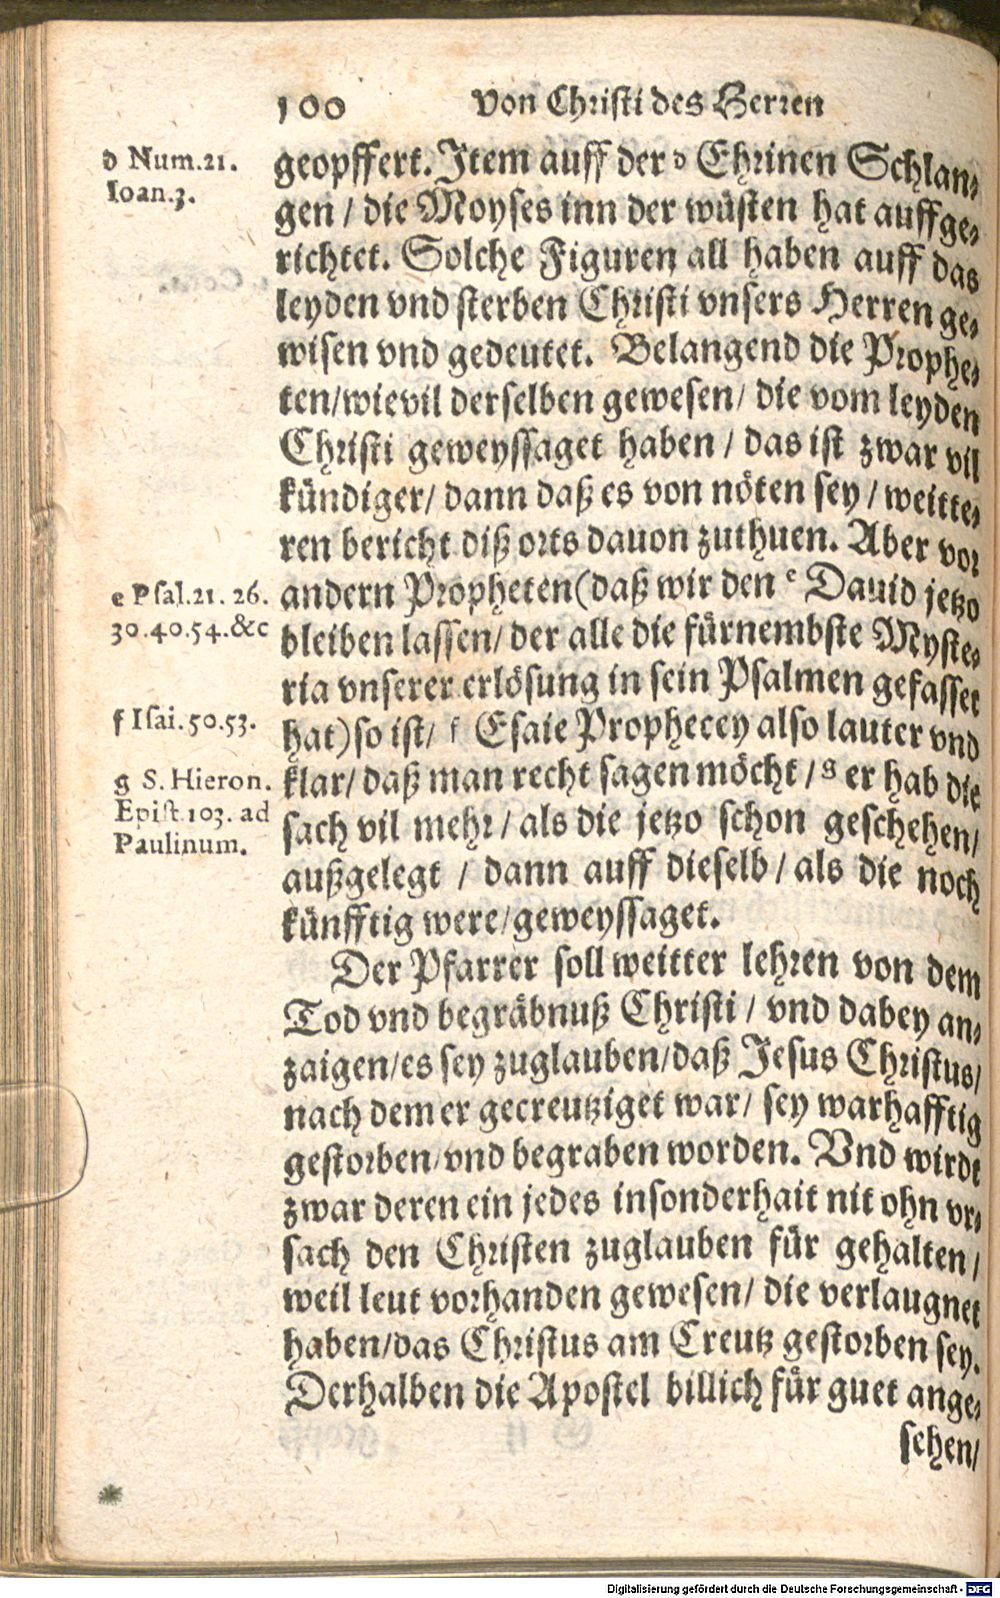 100 von Christi des Herren
d Num.21.
Ioan.3.
geopffert. Item auff der d Ehrinen Schlan-
gen / die Moyses inn der wüsten hat auffge-
richtet. Solche Figuren all haben auff das
leyden vnd sterben Christi vnsers Herren ge-
wisen vnd gedeutet. Belangend die Prophe-
ten/wievil derselben gewesen/ die vom leyden
Christi geweyssaget haben / das ist zwar vil
kündiger/ dann daß es von nöten sey / weitte-
ren bericht diß orts dauon zuthuen. Aber vor
e Psal.21. 26.
30.40.54.&c
andern Propheten(daß wir den e Dauid jetzo
bleiben lassen/ der alle die fürnembste Myste-
ria vnserer erlösung in sein Psalmen gefasset
f Isai.50.53.
hat)so ist/ f Esaie Prophecey also lauter vnd
g S. Hieron.
Epist.103. ad
Paulinum.
klar/ daß man recht sagen möcht / g er hab die
sach vil mehr / als die jetzo schon geschehen/
außgelegt / dann auff dieselb / als die noch
künfftig were/geweyssaget.
Der Pfarrer soll weitter lehren von dem
Tod vnd begräbnuß Christi / vnd dabey an-
zaigen/es sey zuglauben/daß Jesus Christus/
nach dem er gecreutziget war/ sey warhafftig
gestorben/vnd begraben worden. Vnd wirdt
zwar deren ein jedes insonderhait nit ohn vr-
sach den Christen zuglauben für gehalten/
weil leut vorhanden gewesen/ die verlaugnet
haben/das Christus am Creutz gestorben sey.
Derhalben die Apostel billich für guet ange-
sehen/
Digitalisierung gefördert durch die Deutsche Forschungsgemeinschaft - DFG